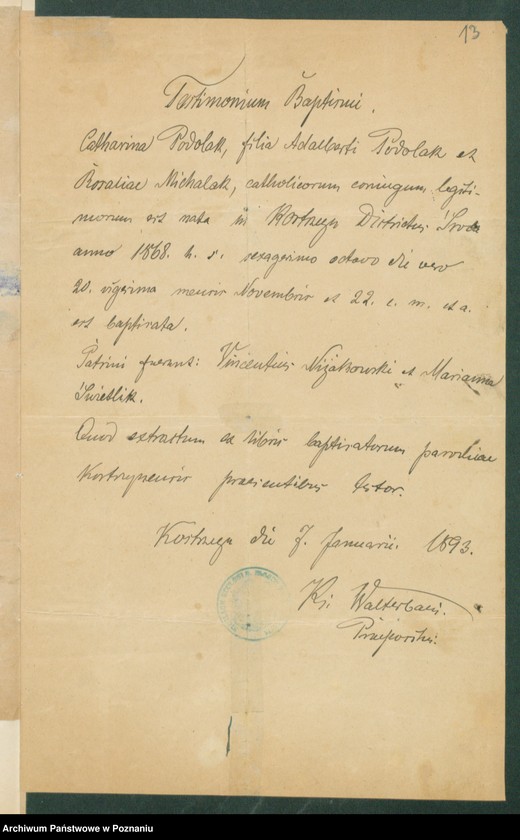 13
Testimonium Baptismi.
Catharina Podolak, filia Adalberti Podolak et
Rosaliae Michalak, catholicorum coniugum legiti-
morum est nata in Kostrzyn Districtus Środa
anno 1868. h. s. sexagesimo octavo die vero
20. vigesima mensis Novembris et 22. e. m. et a.
est baptisata.
Patrini fuerunt: Vincentius Niżałkowski et Marianna
Świetlik.
Quod extractum ex libris baptisatorum parochiae
Kostrzynensis praesentibus testor.
Kostrzyn die 7. Januarii. 1893.
Ks.
Archiwum Państwowe w Poznaniu